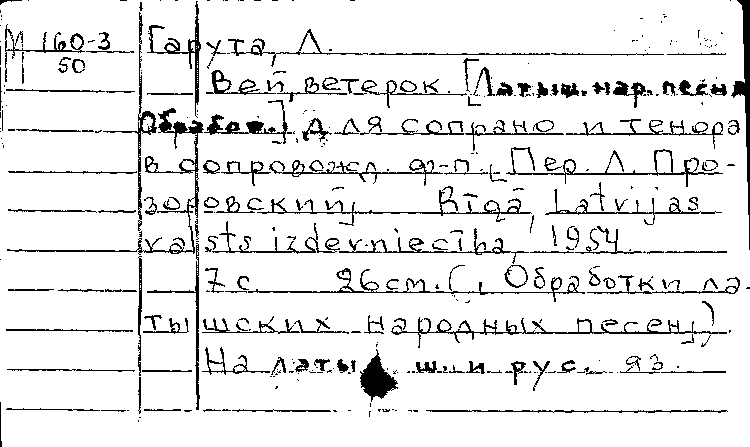 М 160-3
50
Гарута, Л.
Вей, ветерок. [Латыш. нар. песня
Обработ.] Для сопрано и тенора
в сопровожд. ф-п. [Пер. Л. Про-
зоровский]. Rīgā, Latvijas
valsts izdevniecība, 1954.
7 с. 26 см. (Обработки ла-
тышских народных песен)
На латыш. и рус. яз.